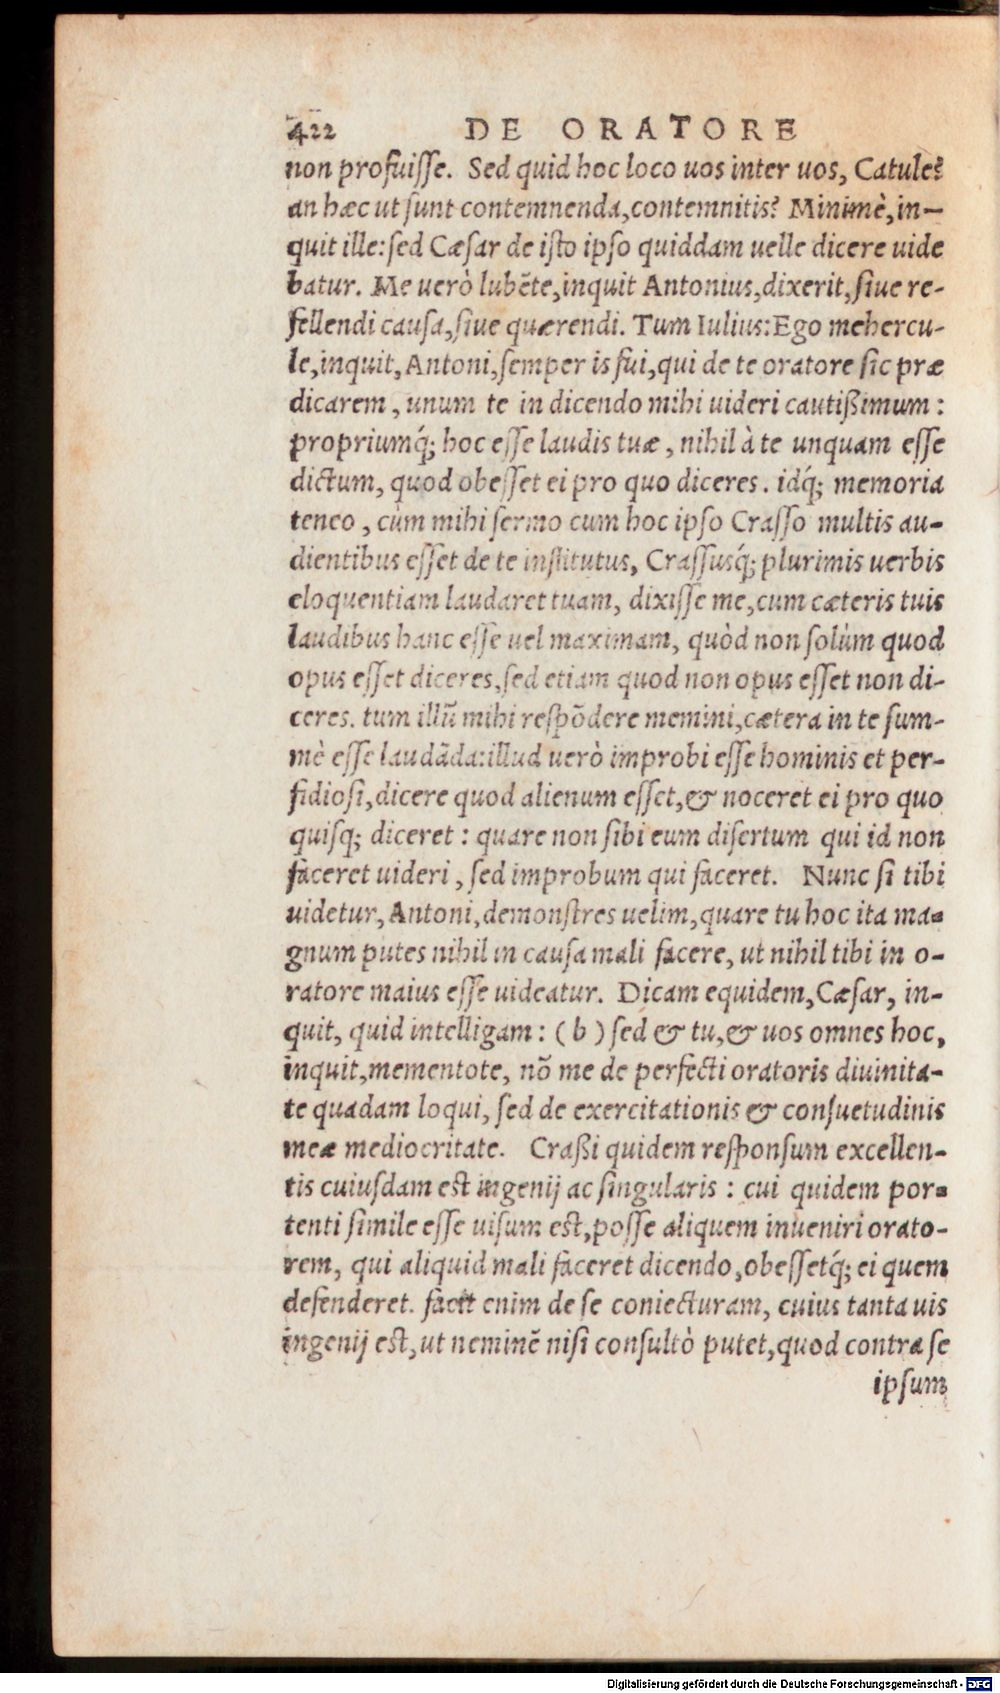 422 DE ORATORE
non profuiſſe. Sed quid hoc loco uos inter uos, Catule?
an hæc ut ſunt contemnenda, contemnitis? Minimè, in-
quit ille: ſed Cæſar de iſto ipſo quiddam uelle dicere uide
batur. Me uerò lubẽte, inquit Antonius, dixerit, ſiue re-
fellendi cauſa, ſiue quærendi. Tum Iulius: Ego mehercu-
le, inquit, Antoni, ſemper is fui, qui de te oratore ſic præ
dicarem, unum te in dicendo mihi uideri cautißimum:
propriumq́; hoc eſſe laudis tuæ, nihil à te unquam eſſe
dictum, quod obeſſet ei pro quo diceres. idq́; memoria
teneo, cùm mihi ſermo cum hoc ipſo Craſſo multis au-
dientibus eſſet de te inſtitutus, Craſſusq́; plurimis uerbis
eloquentiam laudaret tuam, dixiſſe me, cum cæteris tuis
laudibus hanc eſſe uel maximam, quòd non ſolùm quod
opus eſſet diceres, ſed etiam quod non opus eſſet non di-
ceres. tum illũ mihi reſpõdere memini, cætera in te ſum-
mè eſſe laudãda: illud uerò improbi eſſe hominis et per-
fidioſi, dicere quod alienum eſſet, & noceret ei pro quo
quiſq; diceret: quare non ſibi eum diſertum qui id non
faceret uideri, ſed improbum qui faceret. Nunc ſi tibi
uidetur, Antoni, demonſtres uelim, quare tu hoc ita ma-
gnum putes nihil in cauſa mali facere, ut nihil tibi in o-
ratore maius eſſe uideatur. Dicam equidem, Cæſar, in-
quit, quid intelligam: (b) ſed & tu, & uos omnes hoc,
inquit, mementote, nõ me de perfecti oratoris diuinita-
te quadam loqui, ſed de exercitationis & conſuetudinis
meæ mediocritate. Craßi quidem reſponſum excellen-
tis cuiuſdam eſt ingenij ac ſingularis: cui quidem por-
tenti ſimile eſſe uiſum eſt, poſſe aliquem inueniri orato-
rem, qui aliquid mali faceret dicendo, obeſſetq́; ei quem
defenderet. facit enim de ſe coniecturam, cuius tanta uis
ingenij eſt, ut neminẽ niſi conſultò putet, quod contra ſe
ipſum
Digitalisierung gefördert durch die Deutsche Forschungsgemeinschaft - DFG